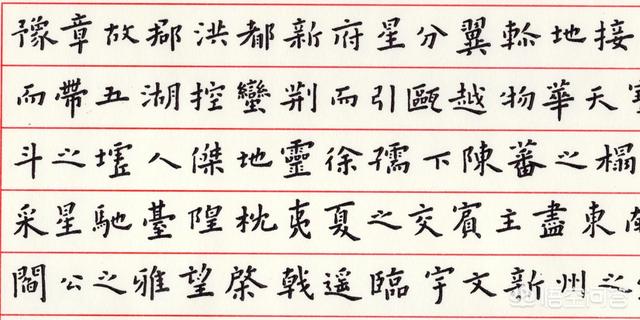 豫章故郡洪都新府星分翼軫地接
而帶五湖控蠻荊而引甌越物華天
斗之墟人傑地靈徐孺下陳蕃之榻
采星馳臺隍枕夷夏之交賓主盡東南
閻公之雅望棨戟遥臨宇文新州之
悟空问答